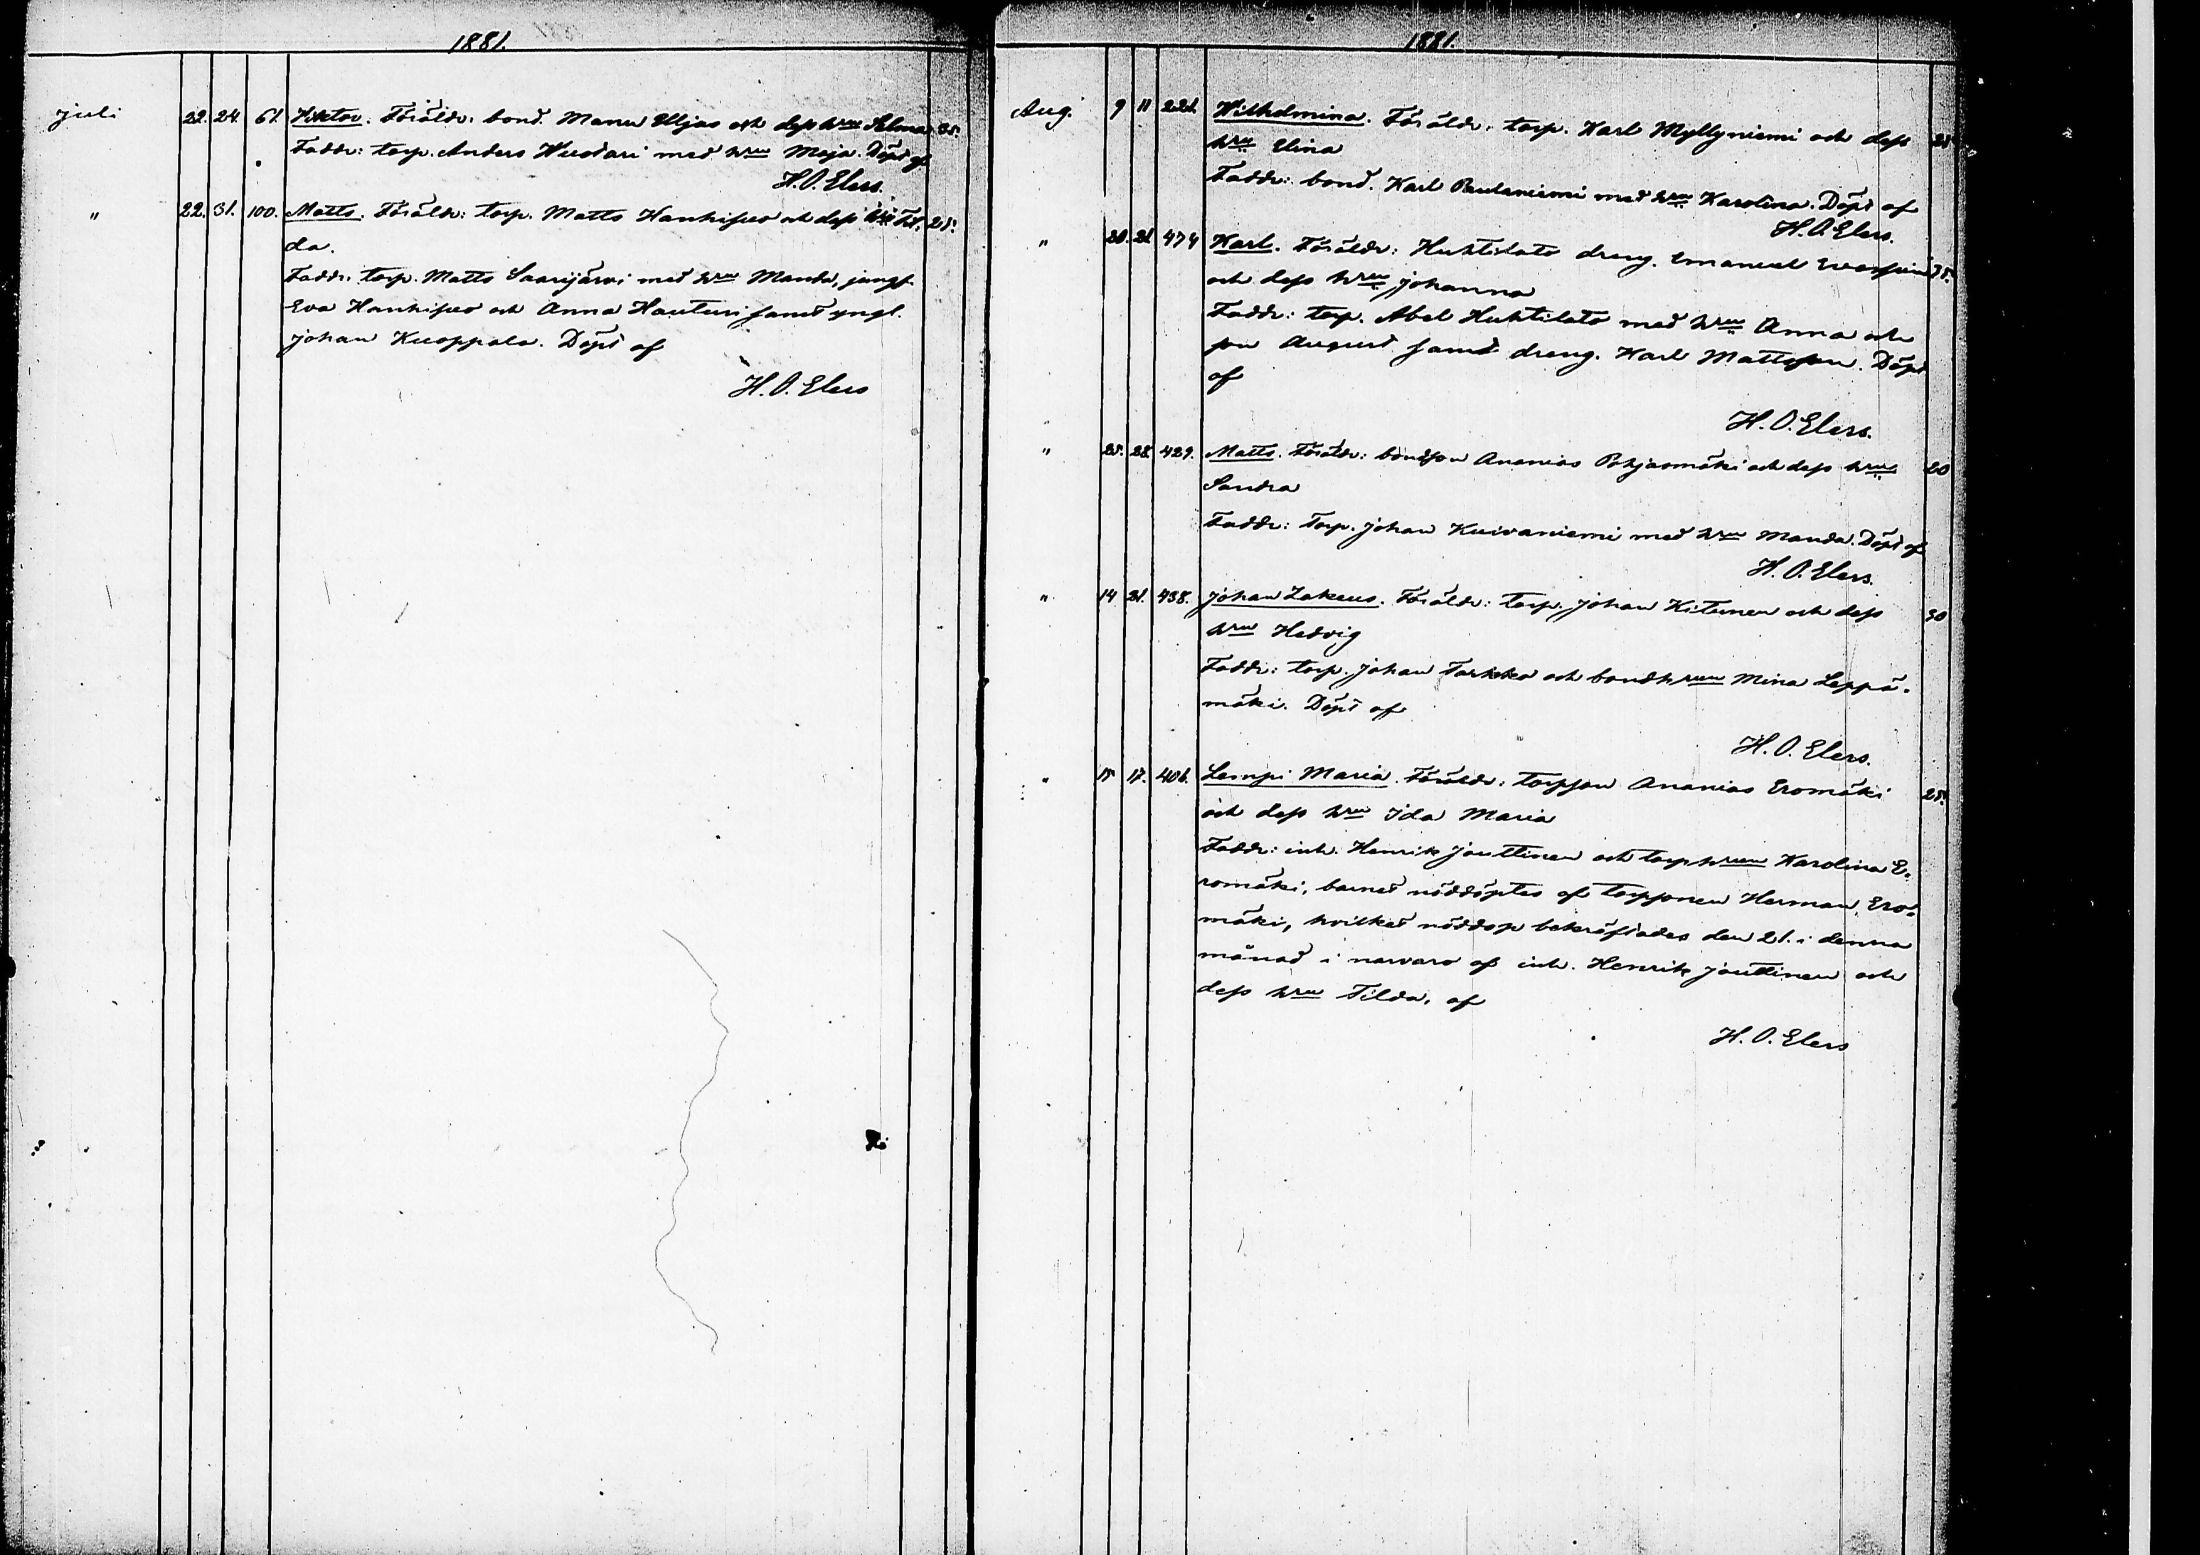 1881.
Juli 22. 24. 61. Viktor. Föräldr. bond. Manu Uljas och dess hru Selma 35.
Faddr: torp. Anders Wuotari med hru Maja. Döpt af
H. O. Elers.
" 22. 31. 100. Matts. Föräldr: torp. Matts Hankipuro och dess hru Til- 25.
da.
Faddr. torp. Matts Saarijärvi med hru Manda, jungf.
Eva Hankipuro och Anna Hauturi samt yngl.
Johan Kuoppala. Döpt af
H. O. Elers
1881.
Aug. 9 11 221. Wilhelmina. Föräldr. torp. Karl Myllyniemi och dess 25
hru Elina
Faddr: bond. Karl Pauloniemi med hru Karolina. Döpt af
H. O. Elers.
" 20. 21 474 Karl. Föräldr: Huhtilato dreng. Emanuel 35.
och dess hru Johanna
Faddr: torp. Abel Huhtilato med hru Anna och
son August samt dreng. Karl Mattsson. Döpt
af
H. O. Elers.
" 25. 28. 429. Matts. Föräldr: bondson Ananias Pohjasmäki och dess hru 20
Sandra
Faddr: Torp. Johan Kuivaniemi med hru Manda. Döpt af
H. O. Elers.
" 14 21. 438. Johan Zakeus. Föräldr: torp. Johan Kitunen och dess 30
hru Hedvig
Faddr: torp. Johan Torkko och bondhrun Mina Leppä-
mäki. Döpt af
H. O. Elers.
" 15 17. 406. Lempi Maria. Föräldr: torpson Ananias Eromäki 25.
och dess hru Ida Maria
Faddr: inh. Henrik Jouttinen och torphrun Karolina E-
romäki, barnet nöddöptes af torpsonen Herman Ero-
mäki, hvilket nöddop bekräftades den 21. i denna
månad i narvaro af inh. Henrik Jouttinen och
dess hru Tilda, af
H. O. Elers